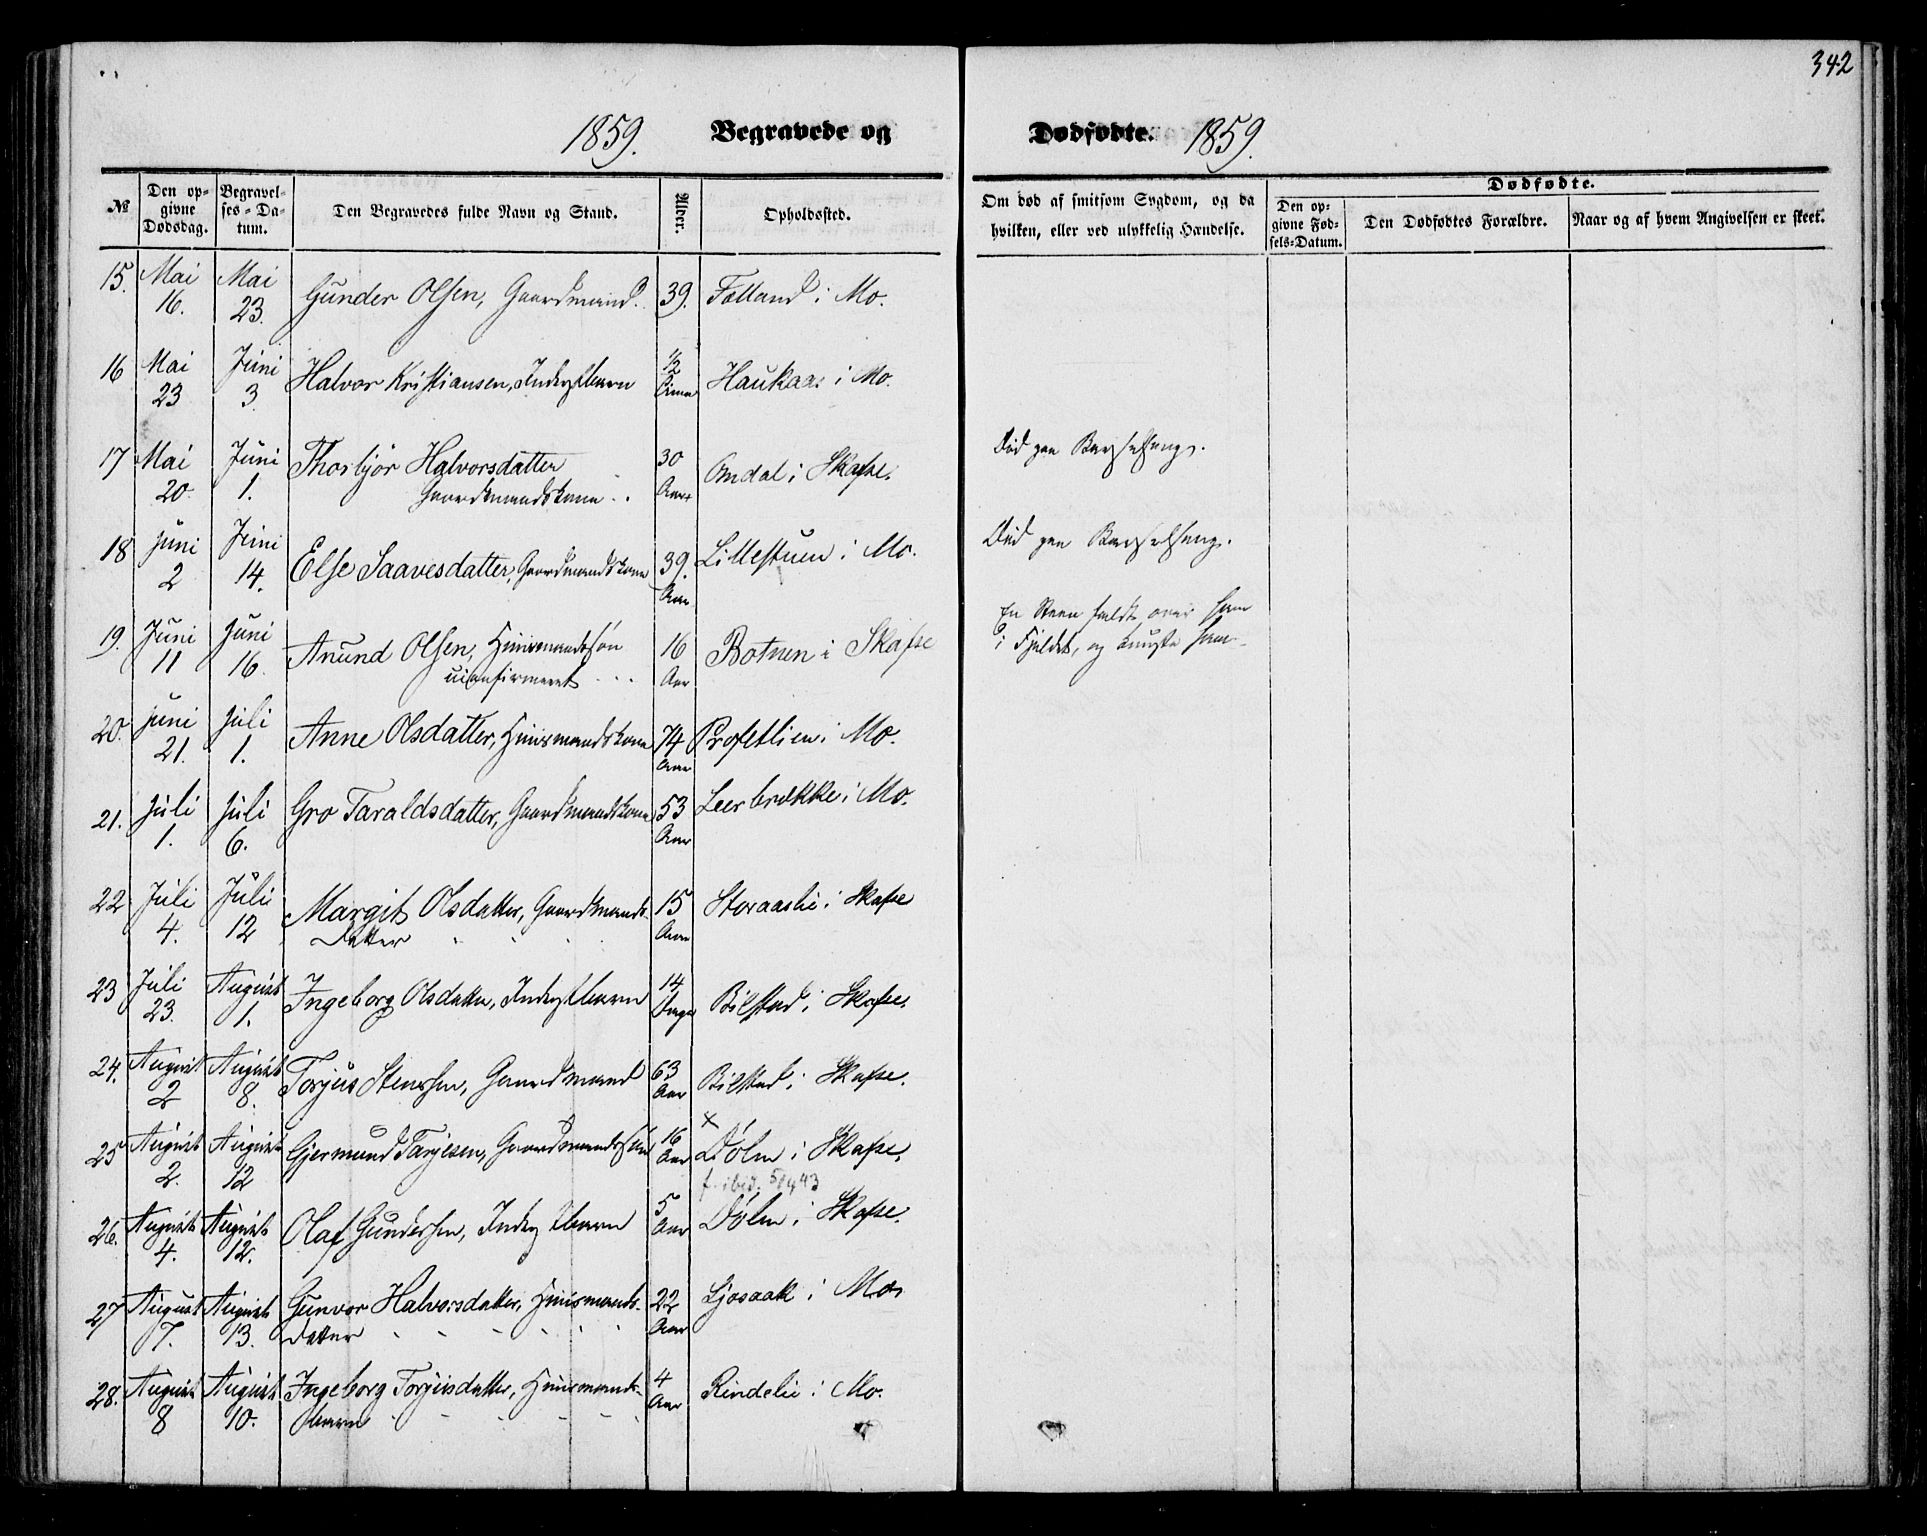 342
1859. Begravede og Dødfødte. 1859.
№ Den opgivne Dødsdag. Begravelses-Datum. Den Begravedes fulde Navn og Stand. Alder. Opholdssted. Om død af smitsom Sygdom, og da hvilken, eller ved ulykkelig Hændelse. Dødfødte. Den opgivne Fødsels-Datum. Den Dødfødtes Forældre. Naar og af hvem Angivelsen er skeet.
15. Mai 16. Mai 23. Gunder Olsen, Gaardmand. 39. Folland i Mo.
16 Mai 23 Juni 3. Halvor Kristiansen, Inderstbarn 1/2 Haukaas i Mo.
17 Mai 20. Juni 1. Thorbjør Halvorsdatter 30 Omdal i Skafse. Død paa Barselseng.
Gaardmandskone Aar
18 Juni 2 Juni 14. Else Saavesdatter, Gaardmandskone 39. Aar Lillestuen i Mo. Død paa Barselseng.
19. Juni 11 Juni 16. Anund Olsen, Huusmandssøn 16 Botnen i Skafse En Steen faldt over ham
uconfirmeret Aar i Fjeldet, og knuste ham
20. Juni 21. Juli 1. Anne Olsdatter, Huusmandskone 74 Aar Profetlien i Mo.
21. Juli 1. Juli 6. Gro Taraldsdatter, Gaardmandskone 53 Aar Leerbrække i Mo.
22 Juli 4. Juli 12 Margit Olsdatter, Gaardmands- 15 Storaaslie i Skafse
datter Aar
23 Juli 23. August 1. Ingeborg Olsdatter, Inderstbarn 14 Dage Bilstad i Skafse.
24. August 2 August 8. Torjus Stensen, Gaardmand 63 Aar Bilstad i Skafse.
25 August 2. August 12 Gjermund Tarjesen, Gaardmandssøn 16 Aar × Dølen i Skafse.
f. ibid. 5/1 43
26. August 4. August 12. Olaf Gundersen, Inderstbarn 5 Aar Dølen i Skafse.
27 August 7. August 13. Gunvor Halvorsdatter, Huusmands- 22 Ljosaak i Mo
datter Aar
28. August 8 August 10. Ingeborg Torjusdatter, Huusmands- 4 Rindelie i Mo.
barn Aar